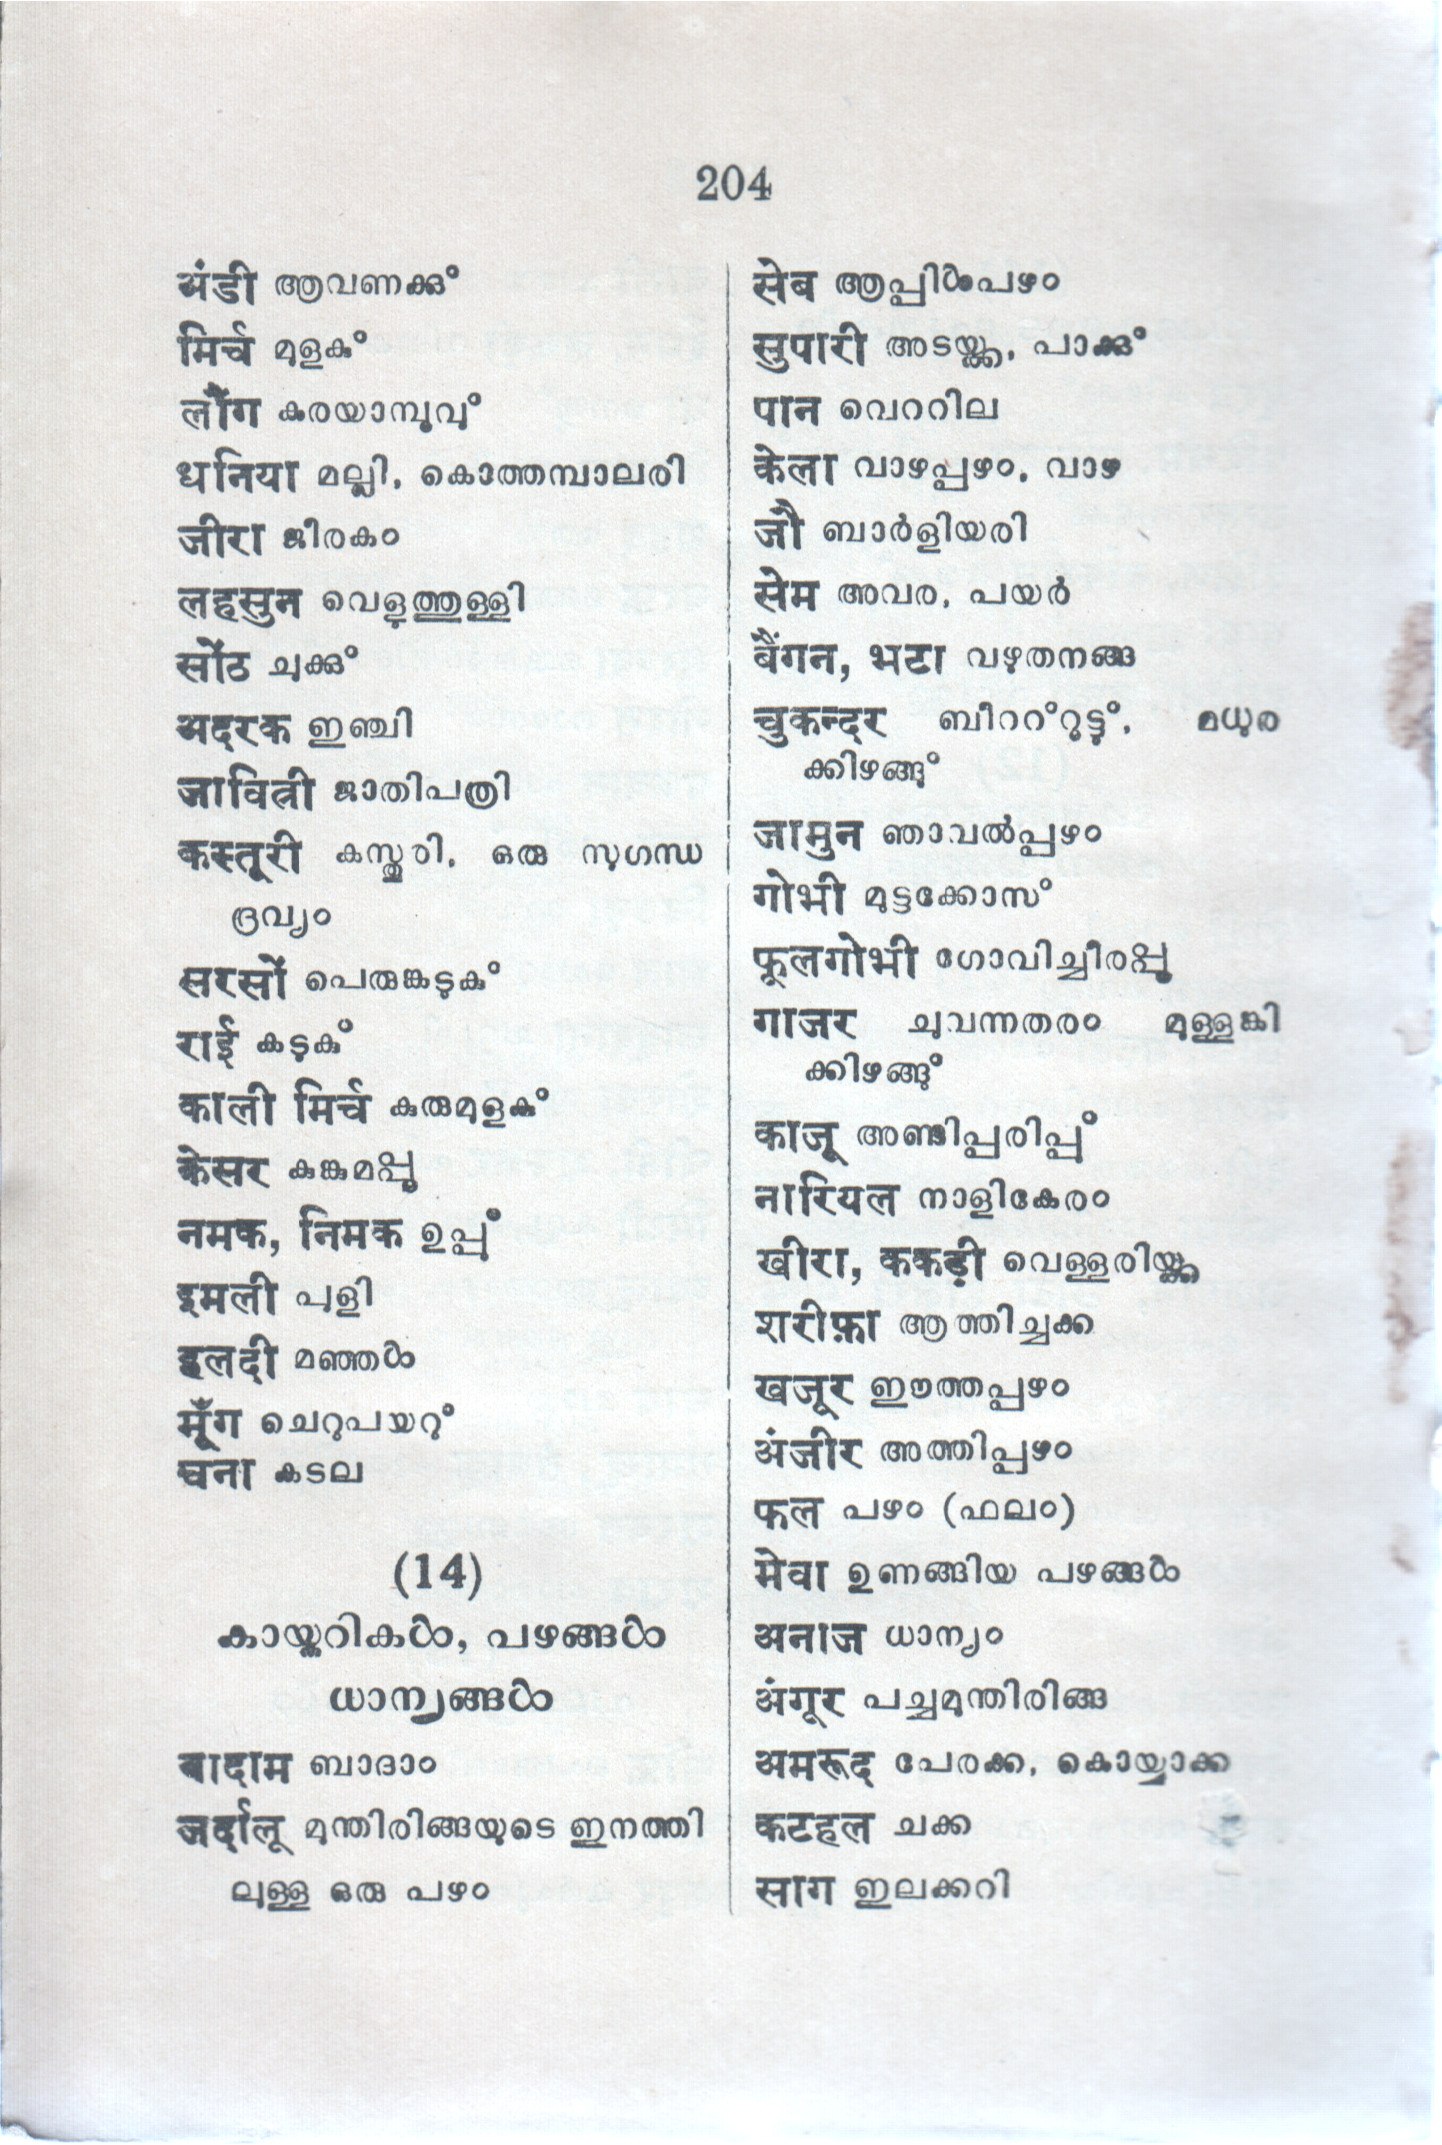 204
अंडी ആവണക്കു്
मिर्च മുളകു്
लौंग കരയാമ്പൂവു്
धनिया മല്ലി, കൊത്തമ്പാലരി
जीरा ജീരകം
लहसुन വെളുത്തുള്ളി
सोंठ ചുക്കു്
अदरक ഇഞ്ചി
जावित्री ജാതിപത്രി
कस्तूरी കസ്തൂരി, ഒരു സുഗന്ധ
ദ്രവ്യം
सरसों പെരുങ്കടുകു്
राई കടുകു്
काली मिर्च കുരുമുളകു്
केसर കുങ്കുമപ്പൂ
नमक, निमक ഉപ്പു്
इमली പുളി
हलदी മഞ്ഞൾ
मूँग ചെറുപയറു്
चना കടല
(14)
കായ്കറികൾ, പഴങ്ങൾ
ധാന്യങ്ങൾ
बादाम ബാദാം
जर्दालू മുന്തിരിങ്ങയുടെ ഇനത്തി
ലുള്ള ഒരു പഴം
सेब ആപ്പിൾപഴം
सुपारी അടയ്ക്ക, പാക്കു്
पान വെററില
केला വാഴപ്പഴം, വാഴ
जौ ബാർളിയരി
सेम അവര, പയർ
बैंगन, भटा വഴുതനങ്ങ
चुकन्दर ബീററ്റൂട്ടു്, മധുര
ക്കിഴങ്ങു്
जामुन ഞാവൽപ്പഴം
गोभी മുട്ടക്കോസ്
फूलगोभी ഗോവിച്ചിരപ്പൂ
गाजर ചുവന്നതരം മുള്ളങ്കി
ക്കിഴങ്ങു്
काजू അണ്ടിപ്പരിപ്പു്
नारियल നാളികേരം
खीरा, ककड़ी വെള്ളരിയ്ക്ക
शरीफ़ा ആത്തിച്ചക്ക
खजूर ഈത്തപ്പഴം
अंजीर അത്തിപ്പഴം
फल പഴം (ഫലം)
मेवा ഉണങ്ങിയ പഴങ്ങൾ
अनाज ധാന്യം
अंगूर പച്ചമുന്തിരിങ്ങ
अमरूद പേരക്ക, കൊയ്യാക്ക
कटहल ചക്ക
साग ഇലക്കറി